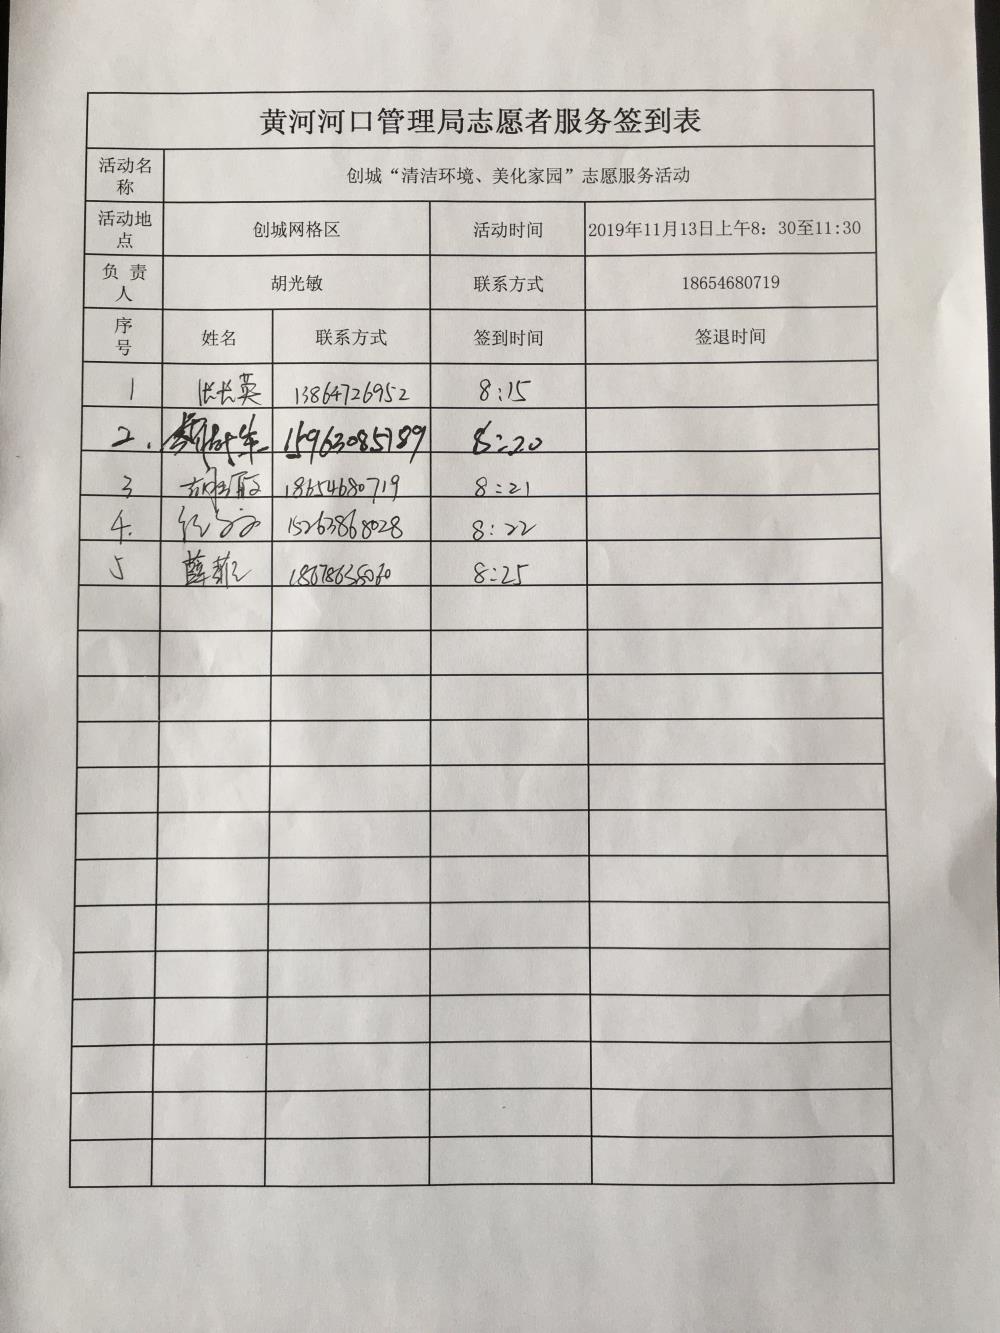 黄河河口管理局志愿者服务签到表
活动名称 创城“清洁环境、美化家园”志愿服务活动
活动地点 创城网格区 活动时间 2019年11月13日上午8：30至11:30
负责人 胡光敏 联系方式 18654680719
序号 姓名 联系方式 签到时间 签退时间
1 张长英 13864726952 8:15
2. 15963085789 8:20
3 胡光敏 18654680719 8:21
4. 15263868028 8:22
5 薛菲 8:25